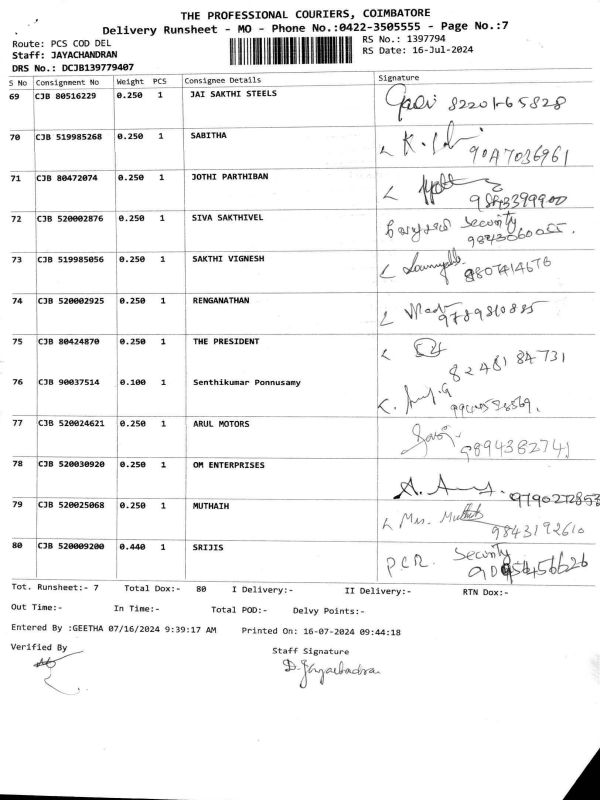 THE PROFESSIONAL COURIERS, COIMBATORE
Delivery Runsheet - MO - Phone No.:0422-3505555 - Page No.:7
Route: PCS COD DEL RS No.: 1397794
Staff: JAYACHANDRAN RS Date: 16-Jul-2024
DRS No.: DCJB139779407
S No Consignment No Weight PCS Consignee Details Signature
69 CJB 80516229 0.250 1 JAI SAKTHI STEELS
70 CJB 519985268 0.250 1 SABITHA
71 CJB 80472074 0.250 1 JOTHI PARTHIBAN
9843399900
72 CJB 520002876 0.250 1 SIVA SAKTHIVEL Security
9843060055.
73 CJB 519985056 0.250 1 SAKTHI VIGNESH 9807414676
74 CJB 520002925 0.250 1 RENGANATHAN 9789810885
75 CJB 80424870 0.250 1 THE PRESIDENT
82481 84731
76 CJB 90037514 0.100 1 Senthikumar Ponnusamy
77 CJB 520024621 0.250 1 ARUL MOTORS
9894382741
78 CJB 520030920 0.250 1 OM ENTERPRISES
79 CJB 520025068 0.250 1 MUTHAIH
9843192610
80 CJB 520009200 0.440 1 SRIJIS Security
Tot. Runsheet:- 7 Total Dox:- 80 I Delivery:- II Delivery:- RTN Dox:-
Out Time:- In Time:- Total POD:- Delvy Points:-
Entered By :GEETHA 07/16/2024 9:39:17 AM Printed On: 16-07-2024 09:44:18
Verified By Staff Signature